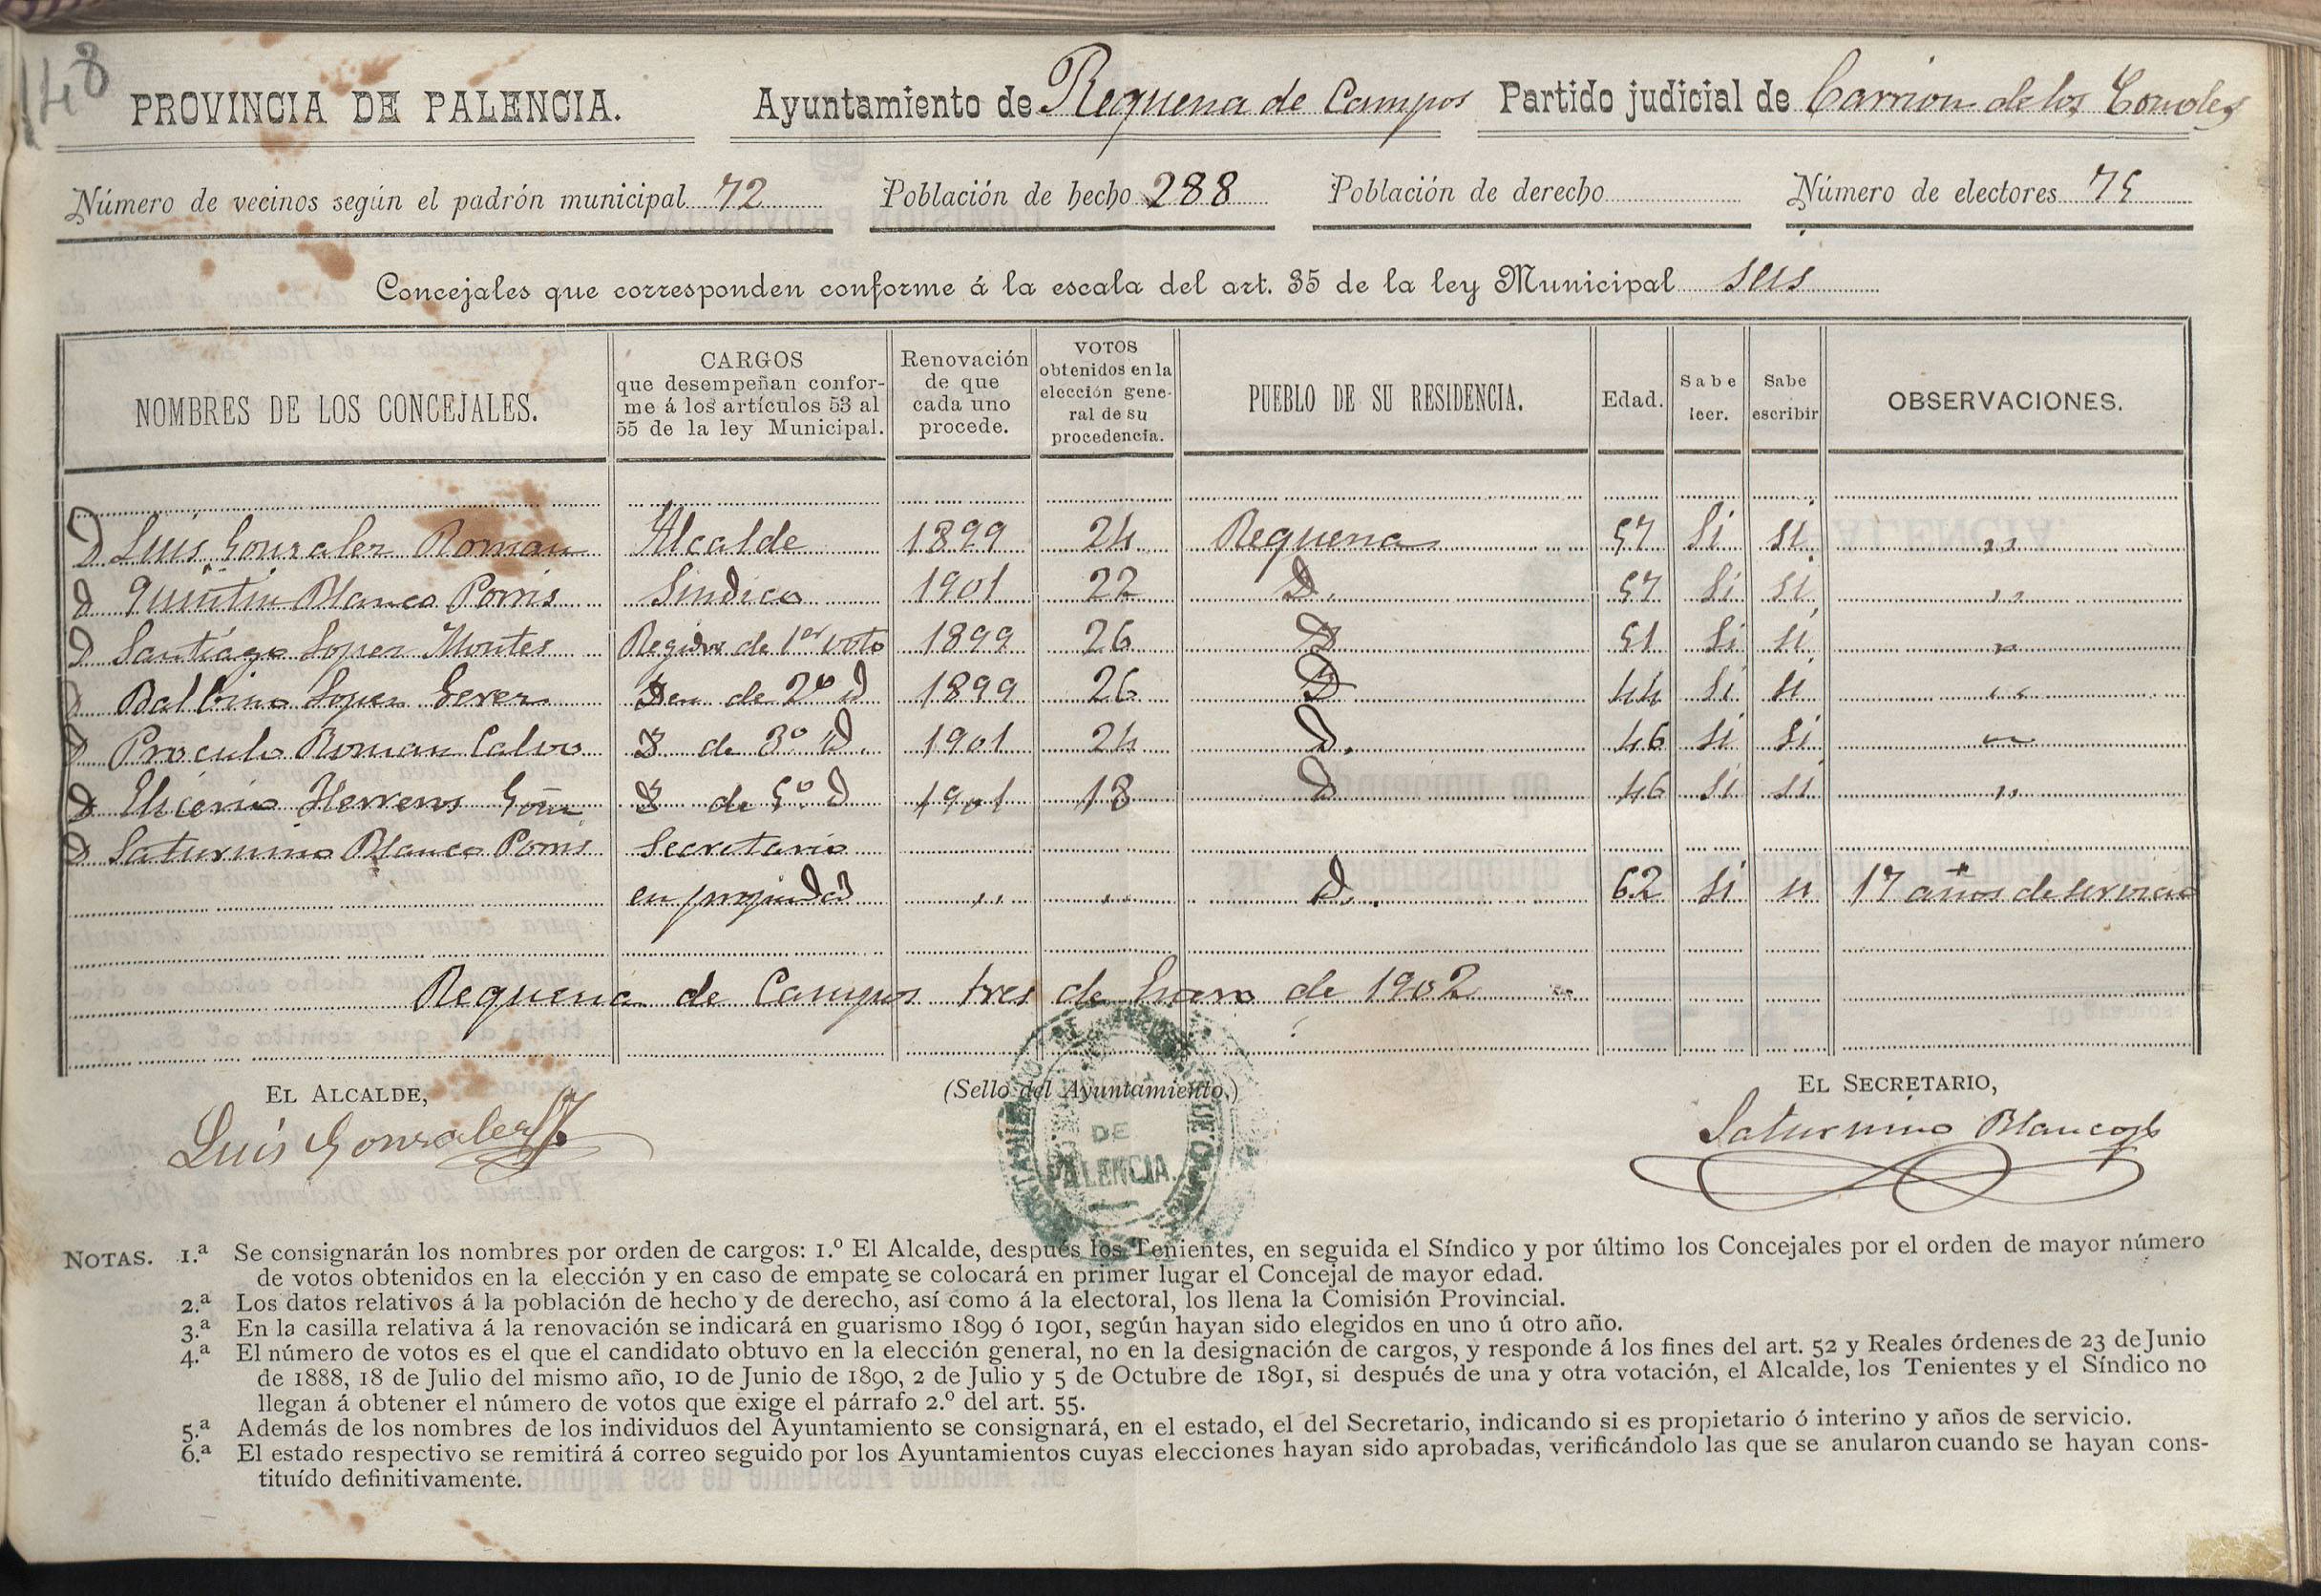 148
PROVINCIA DE PALENCIA. Ayuntamiento de Requena de Campos Partido judicial de Carrion de los Condes
Número de vecinos según el padrón municipal 72 Población de hecho 288 Población de derecho Número de electores 75
Concejales que corresponden conforme á la escala del art. 35 de la ley Municipal seis
NOMBRES DE LOS CONCEJALES. CARGOS que desempeñan confor- me á los artículos 53 al 55 de la ley Municipal. Renovación de que cada uno procede. VOTOS obtenidos en la elección gene- ral de su procedencia. PUEBLO DE SU RESIDENCIA. Edad. Sabe leer. Sabe escribir OBSERVACIONES.
D Luis Gonzalez Roman Alcalde 1899 24 Requena 57 Si si ,,
D Quintin Blanco Porris Sindico 1901 22 D. 57 Si si ,,
D Santiago Lopez Montes Regidor de 1er voto 1899 26 D 51 Si si ,,
D Balbino Lopez Perez Den de 2º d 1899 26 D 44 Si si ,,
D Proculo Roman Calvo D de 3º D. 1901 24 D. 46 si si ,,
D Herrero D de 5º D 1901 18 D 46 si si ,,
D Saturnino Blanco Porris Secretario
en propiedad ,, ,, D. 62 si si 17 años de servicio
Requena de Campos tres de Enero de 1902
EL ALCALDE, (Sello del Ayuntamiento.) EL SECRETARIO,
Luis Gonzalez Saturnino Blanco
DE
PALENCIA.
NOTAS. 1.ª Se consignarán los nombres por orden de cargos: 1.º El Alcalde, después los Tenientes, en seguida el Síndico y por último los Concejales por el orden de mayor número
de votos obtenidos en la elección y en caso de empate se colocará en primer lugar el Concejal de mayor edad.
2.ª Los datos relativos á la población de hecho y de derecho, así como á la electoral, los llena la Comisión Provincial.
3.ª En la casilla relativa á la renovación se indicará en guarismo 1899 ó 1901, según hayan sido elegidos en uno ú otro año.
4.ª El número de votos es el que el candidato obtuvo en la elección general, no en la designación de cargos, y responde á los fines del art. 52 y Reales órdenes de 23 de Junio
de 1888, 18 de Julio del mismo año, 10 de Junio de 1890, 2 de Julio y 5 de Octubre de 1891, si después de una y otra votación, el Alcalde, los Tenientes y el Síndico no
llegan á obtener el número de votos que exige el párrafo 2.º del art. 55.
5.ª Además de los nombres de los individuos del Ayuntamiento se consignará, en el estado, el del Secretario, indicando si es propietario ó interino y años de servicio.
6.ª El estado respectivo se remitirá á correo seguido por los Ayuntamientos cuyas elecciones hayan sido aprobadas, verificándolo las que se anularon cuando se hayan cons-
tituído definitivamente.